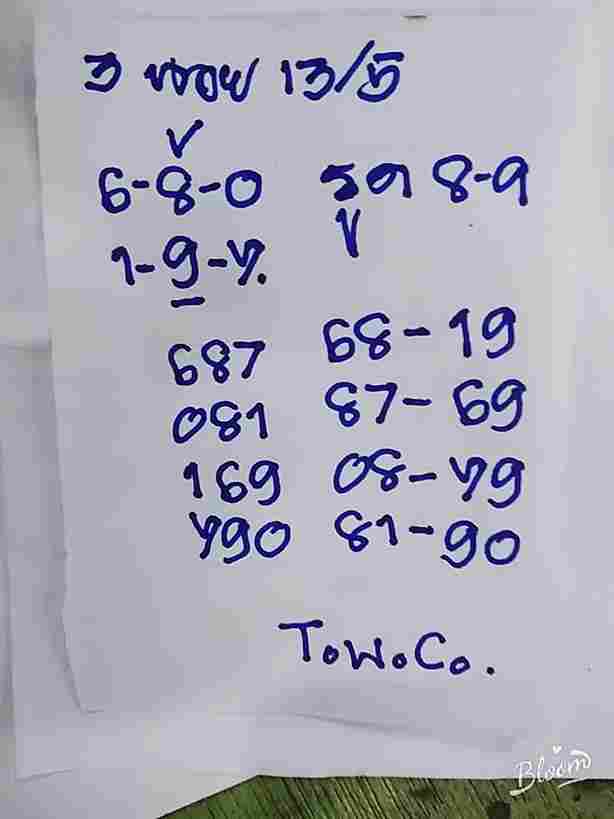 3 ตอง 13/5
6-8-0 รูด 8-9
1-9-7.
687 68-19
081 87-69
169 08-79
790 81-90
T.W.Co.
Bloom